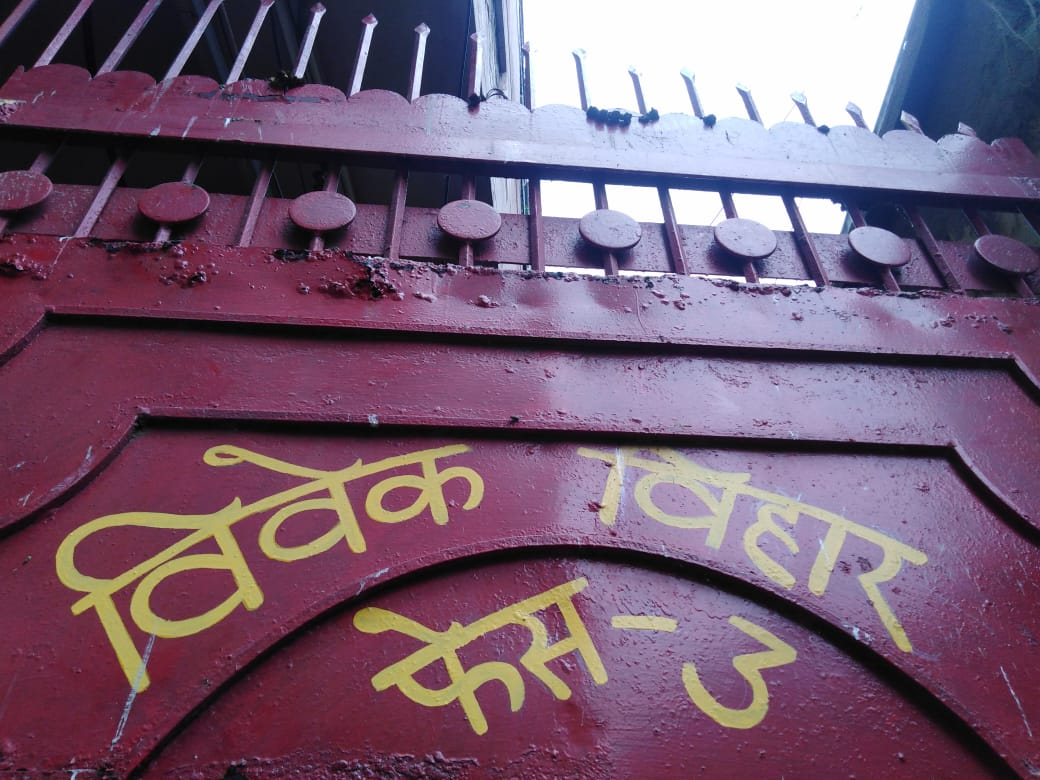 विवेक विहार
फेस - 3